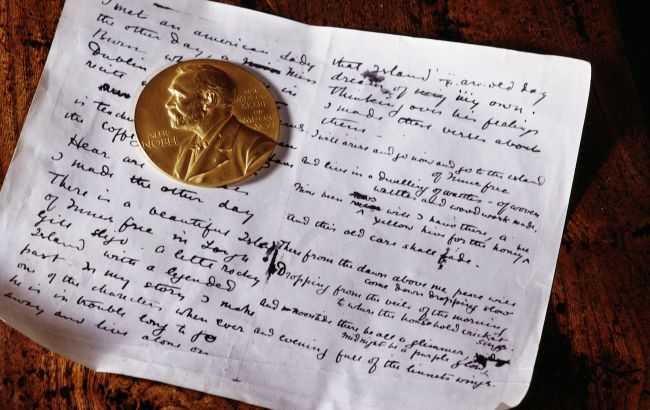 I met an american Lady
the other day, a Miss
Burn
Dublin
recite
is teach
the coff
Hear are
I made the other day
There is a beautiful Island
of Innis free in Lough
Gill Sligo. A little rocky
Island with a legended
past. In my story I make
one of the characters when ever
he is in trouble long to go
away and live alone on
that Island — an old day
dream of my own.
Thinking over his feelings
I made these verses about
them —
I will arise and go now and go to the island
of Innis free
and live in a dwelling of wattles — of woven
wattles and wood work made.
Nine been rows will I have there, a
yellow hive for the honey
and this old care shall fade.
There from the dawn above me peace will
come down dropping slow
Dropping from the veils of the morning
to where the household cricket
sings.
and noontide there be all a glimmer,
midnight be a purple glow
and evening full of the linnets wings.
ALFR.
NOBEL
NAT
MDCCC
XXXIII
OB